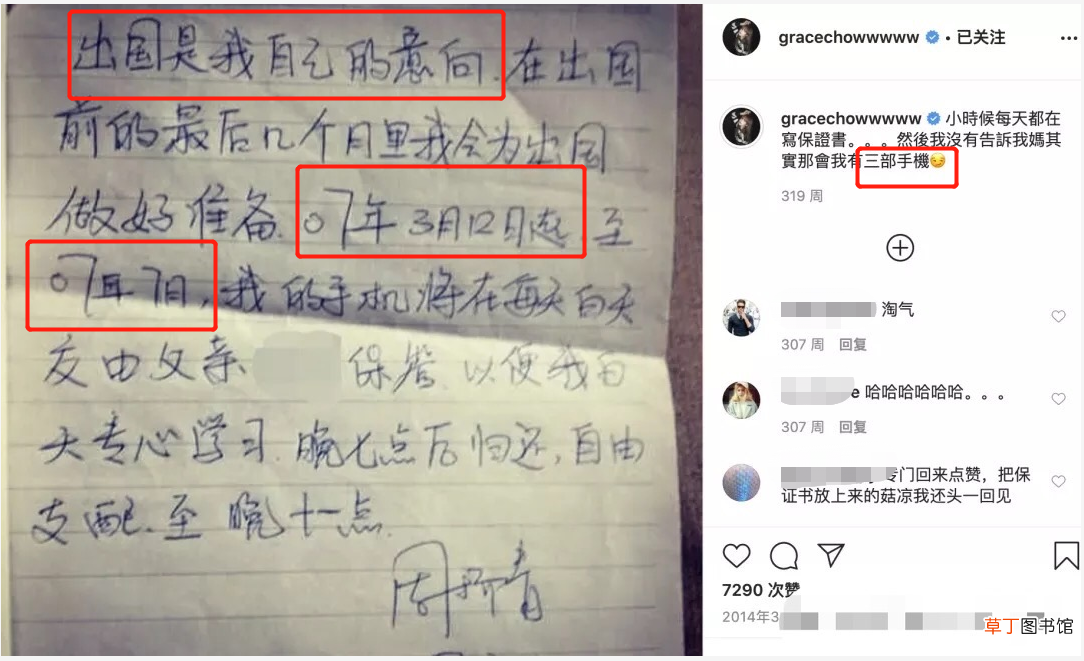 出国是我自己的意向.在出国
前的最后几个月里我会为出国
做好准备.07年3月12日起.至
07年7日,我的手机将在每天白天
交由父亲
保管.以便我白
天专心学习.晚七点后归还,自由
支配.至晚十一点.
gracechowwwww • 已关注
gracechowwwww 小時候每天都在
寫保證書。。。然後我沒有告訴我媽其
實那會我有三部手機😏
319 周
淘气
307 周 回复
e 哈哈哈哈哈哈。。。
307 周 回复
专门回来点赞，把保
证书放上来的菇凉我还头一回见
7290 次赞
2014年3
草丁图书馆